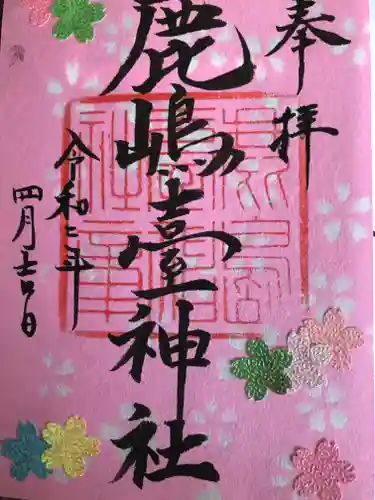 奉拝
鹿嶋臺神社
令和二年
四月吉日